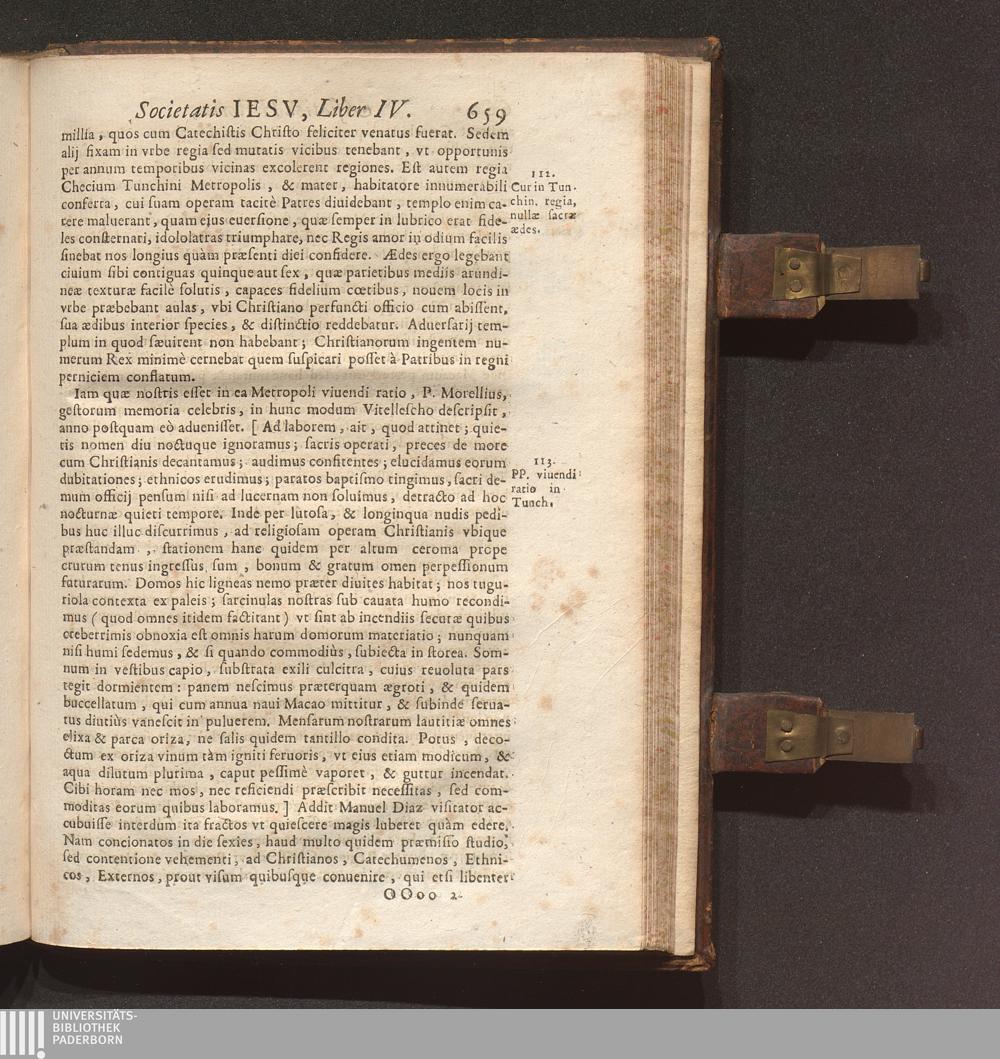 Societatis IESV, Liber IV. 659
millia, quos cum Catechistis Christo feliciter venatus fuerat. Sedem
alij fixam in vrbe regia sed mutatis vicibus tenebant, vt opportunis
per annum temporibus vicinas excolerent regiones. Est autem regia
Checium Tunchini Metropolis, & mater, habitatore innumerabili
conferta, cui suam operam tacitè Patres diuidebant, templo enim ca-
rere maluerant, quam ejus euersione, quæ semper in lubrico erat fide-
les consternari, idololatras triumphare, nec Regis amor in odium facilis
sinebat nos longius quàm præsenti diei confidere. Ædes ergo legebant
ciuium sibi contiguas quinque aut sex, quæ parietibus mediis arundi-
neæ texturæ facilè solutis, capaces fidelium cœtibus, nouem locis in
vrbe præbebant aulas, vbi Christiano perfuncti officio cum abissent,
sua ædibus interior species, & distinctio reddebatur. Aduersarij tem-
plum in quod sæuirent non habebant; Christianorum ingentem nu-
merum Rex minimè cernebat quem suspicari posset à Patribus in regni
perniciem conflatum.
112.
Cur in Tun-
chin. regia,
nullæ sacræ
ædes.
Iam quæ nostris esset in ea Metropoli viuendi ratio, P. Morellius,
gestorum memoria celebris, in hunc modum Vitellescho descripsit,
anno postquam eò aduenisset. [ Ad laborem, ait, quod attinet; quie-
tis nomen diu noctuque ignoramus; sacris operati, preces de more
cum Christianis decantamus; audimus confitentes; elucidamus eorum
dubitationes; ethnicos erudimus; paratos baptismo tingimus, sacri de-
mum officij pensum nisi ad lucernam non soluimus, detracto ad hoc
nocturnæ quieti tempore. Inde per lutosa, & longinqua nudis pedi-
bus huc illuc discurrimus, ad religiosam operam Christianis vbique
præstandam, stationem hanc quidem per altum ceroma prope
crurum tenus ingressus sum, bonum & gratum omen perpessionum
futurarum. Domos hic ligneas nemo præter diuites habitat; nos tugu-
riola contexta ex paleis; sarcinulas nostras sub cauata humo recondi-
mus ( quod omnes itidem factitant ) vt sint ab incendiis securæ quibus
creberrimis obnoxia est omnis harum domorum materiatio; nunquam
nisi humi sedemus, & si quando commodiùs, subiecta in storea. Som-
num in vestibus capio, substrata exili culcitra, cuius reuoluta pars
tegit dormientem: panem nescimus præterquam ægroti, & quidem
buccellatum, qui cum annua naui Macao mittitur, & subinde serua-
tus diutiùs vanescit in puluerem. Mensarum nostrarum lautitiæ omnes
elixa & parca oriza, ne salis quidem tantillo condita. Potus, deco-
ctum ex oriza vinum tàm igniti feruoris, vt eius etiam modicum, &
aqua dilutum plurima, caput pessimè vaporet, & guttur incendat.
Cibi horam nec mos, nec reficiendi præscribit necessitas, sed com-
moditas eorum quibus laboramus. ] Addit Manuel Diaz visitator ac-
cubuisse interdum ita fractos vt quiescere magis luberet quàm edere.
Nam concionatos in die sexies, haud multo quidem præmisso studio,
sed contentione vehementi, ad Christianos, Catechumenos, Ethni-
cos, Externos, prout visum quibusque conuenire, qui etsi libenter
113.
PP. viuendi
ratio in
Tunch.
OOoo 2
UNIVERSITÄTS-
BIBLIOTHEK
PADERBORN